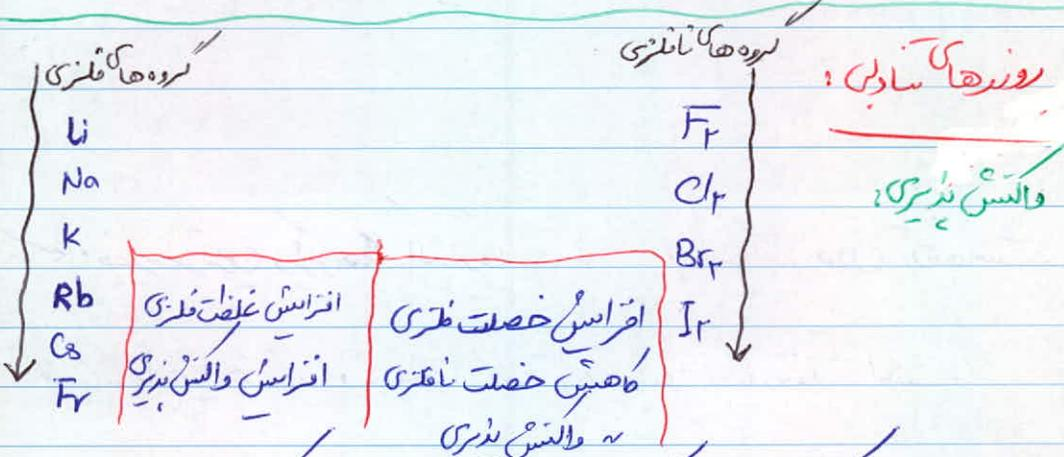 روندهای تناوبی:
واکنش پذیری:
گروه های نافلزی
F۲
Cl۲
Br۲
I۲
افزایش خصلت فلزی
کاهش خصلت نافلزی
〃 واکنش پذیری
گروه های فلزی
Li
Na
K
Rb
Cs
Fr
افزایش غلظت فلزی
افزایش واکنش پذیری